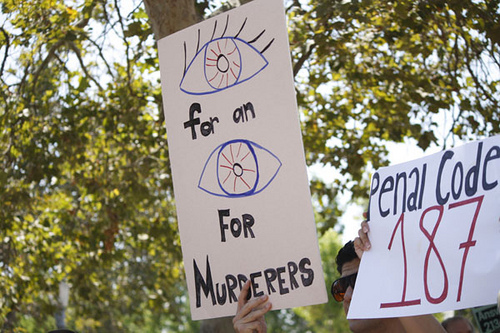 for an
FOR
MURDERERS
Penal Code
187